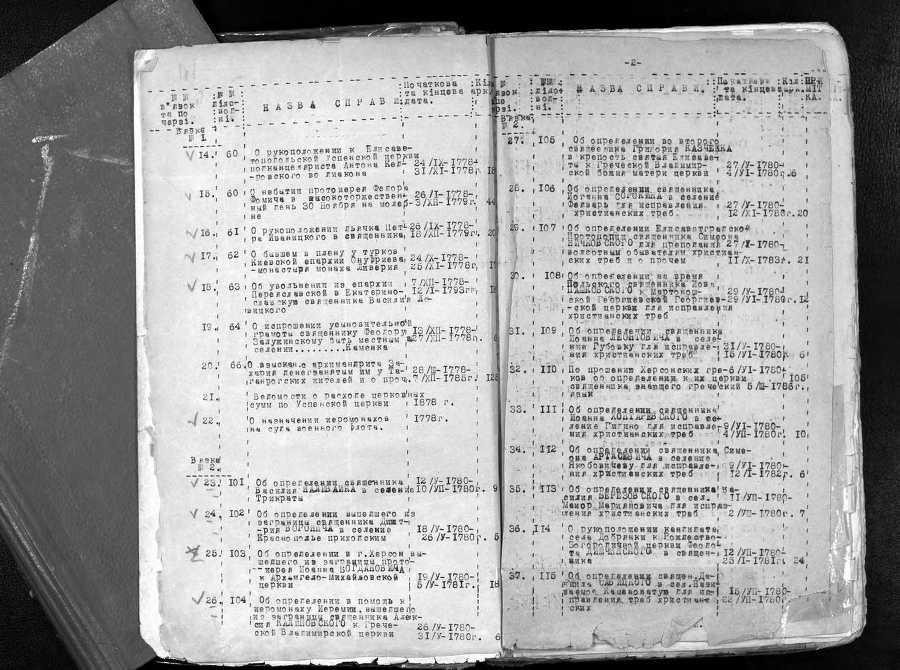 № №
в'язок
та по
черзі.
№ №
діло-
вод-
ні.
НАЗВА СПРАВИ
Початкова
та кінцева
дата.
Вязка
№ 1.
14. 60 О рукоположении к Елисаве-
топольской Успенской церкви
подканцеляриста Антона Кел-
-ровского во диакона
24/IX-1778-
31/XI-1778г. 18
15. 60 О небытии протоиерея Федора
Фомича в высокоторжествен-
ный день 30 Ноября на молеб-
не
26/I-1778-
3/XII-1779г. 44
16. 61 О рукоположении дьячка Пет-
ра Иваницкого в священника
26/IX-1778-
18/XII-1779г. 20
17. 62 О бывшем в плену у турков
Киевской епархии Онуфриева
-монастыря монаха Живерия
24/IX-1778-
25/XI-1778г.
18. 63 Об увольнении из епархии
Переяславской в Екатерино-
славскую священника Василия Ле-
вицкого
7/XII-1778-
12/I-1793гг.
19. 64 О испрошении усыновительной
грамоты священнику Феодору
Залужинскому быть местным в
селении.........Каменка
13/XII-1778-
27/XII-1778г.
20. 66. О взыскан.с архимандрита За-
хария денегзанятым им у Та-
ганрогских жителей и о проч.
28/III-1778-
7/XII-1785г. 125
21. Ведомости о расходе церковных
сумм по Успенской церкви
1878 г.
22. О назначении иеромонахов
на суда военного флота.
1778г.
Вязка
№ 2.
23. 101 Об определении священника
Василия в селение
Трикраты
12/V-1780-
10/VII-1780г. 9
24. 102 Об определении вышедшего из
заграницы священника Димит-
-рия ВОРОНИЧА в селение
Краснополье приходским
18/V-1780-
26/V-1780г. 5
25. 103 Об определении в г.Херсон вы-
шедшего из заграницы прото-
-иерея Иоанна БОГДАНОВИЧА
к Архангело-Михайловской
церкви
19/V-1780-
5/V-1781г. 18
26. 104 Об определении в помощь к
иеромонаху Иеремии, вышедшего
из заграницы священника Алек-
сия КАЛИНОВСКОГО к Грече-
ской Владимирской церкви
26/V-1780-
31/V-1780г. 6
-2-
НАЗВА СПРАВИ.
Початкова
та кінцева
дата.
Кіл.
арк.
ПРИ
МІТ
КА.
Вязка
№ 2.
27. 105 Об определении во второго
священника Григория КАЗЧЕВКА
в крепость святыя Елисаве-
ты к Греческой Владимир-
ской божия матери церкви
27/V-1780-
4/VI-1780г. 6
28. 106 Об определении священника
Иоганна СОРОКИНА в селение
для исправления
христианских треб
27/V-1780-
12/XI-1786г. 20
29. 107 Об определении Елисаветградской
Протопопии священника Симеона
для преподаний
волостным обывателям христиан-
ских треб и о прочем
27/V-1780-
11/X-1783г. 21
30. 108 Об определении на время
Польского священника Иова
к Мартонош-
ской Георгиевской Георгиев-
-ской церкви для исправления
христианских треб
29/V-1780-
29/VI-1780г. 12
31. 109 Об определении священника
Иоанна ЛЕОНТОВИЧА в селе-
ние Губовку для исправле-
ния христианских треб
31/V-1780-
15/VI-1780г. 6
32. 110 По прошению Херсонских гре-
ков об определении к их церкви
священника знающего греческий
язык
6/VI-1780-
5/III-1786г. 105
33. 111 Об определении священника
Иоанна КОНТАРЕВСКОГО в се-
ление Гигино для исправле-
ния христианских треб
9/VI-1780-
4/VII-1780г. 10
34. 112 Об определении священника Симе-
она АРТАСЕВИЧА в селение
Якобовичеву для исправле-
ния христианских треб
9/VI-1780-
12/I-1782г. 6
35. 113 Об определении священника Ва-
силия БЕРЕЗОВСКОГО в сел.
Манор Мариановича для исправ-
ления христианских треб
11/VII-1780-
2/VII-1780г. 7
36. 114 О рукоположении кандидата
села Добрянки к Рождество-
Богородичной церкви Феодо-
та в священ-
ника
12/VII-1780-
23/I-1781г. 24
37. 115 Об определении священ.Да-
ниила САВИЦКОГО в сел.Назы-
ваемое для ис-
правления треб христиан-
ских
15/VII-1780-
22/VII-1780г.